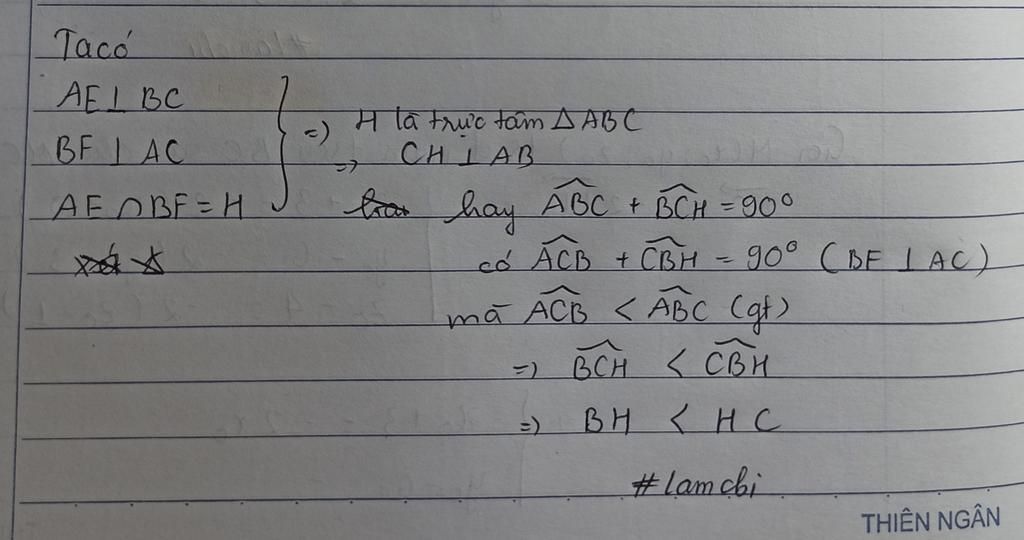 Ta có
AE ⊥ BC
BF ⊥ AC
AE ∩ BF = H
=> H là trực tâm Δ ABC
=> CH ⊥ AB
hay \widehat{ABC} + \widehat{BCH} = 90°
có \widehat{ACB} + \widehat{CBH} = 90° (BF ⊥ AC)
mà \widehat{ACB} < \widehat{ABC} (gt)
=> \widehat{BCH} < \widehat{CBH}
=> BH < HC
#lamchi
THIÊN NGÂN